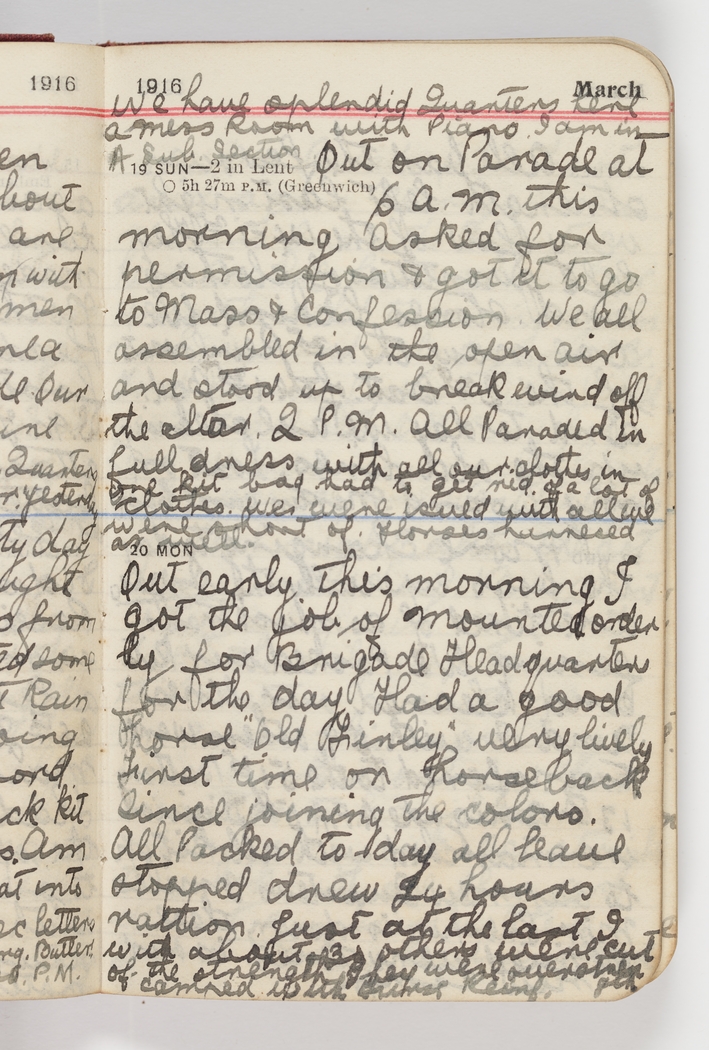 1916
en
bout
are
m with
men
Our
ine
Quarters
yesterday
ty day
ught
s from
ed some
t Rain
oing
ord
ck kit
s. Am
at into
ec letters
Butter
P.M.
1916 March
We have splendid Quarters here
a mess Room with Piano. I am in
A Sub. Section
19 SUN—2 in Lent Out on Parade at
5h 27m P.M. (Greenwich)
6 A.m. this
morning asked for
permission & got it to go
to Mass & Confession. We all
assembled in the open air
and stood up to break wind off
the altar. 2 P.M. All Paraded in
full dress with all our clothes in
one kit bag had to get rid of a lot of
clothes. We were issued with
were short of Horses harneced
as well.
20 MON
Out early this morning I
got the job of mounted order
ly for Brigade Headquarters
for the day Had a good
horse "Old Finley" very lively
First time on horseback
since joining the colors.
All Packed to day all leave
stopped drew 24 hours
rattion. Just at the last I
with about 30 others were cut
of the strength they were overstren
camped with Reinf. gth